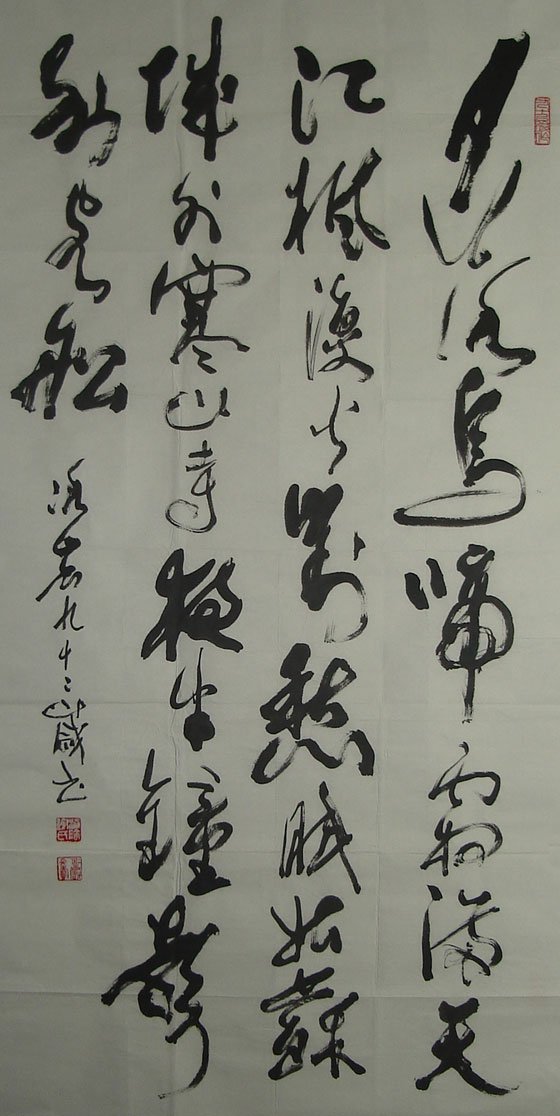 月落烏啼霜滿天
江楓漁火對愁眠姑蘇
城外寒山寺夜半鐘聲
到客船
九十二歲书